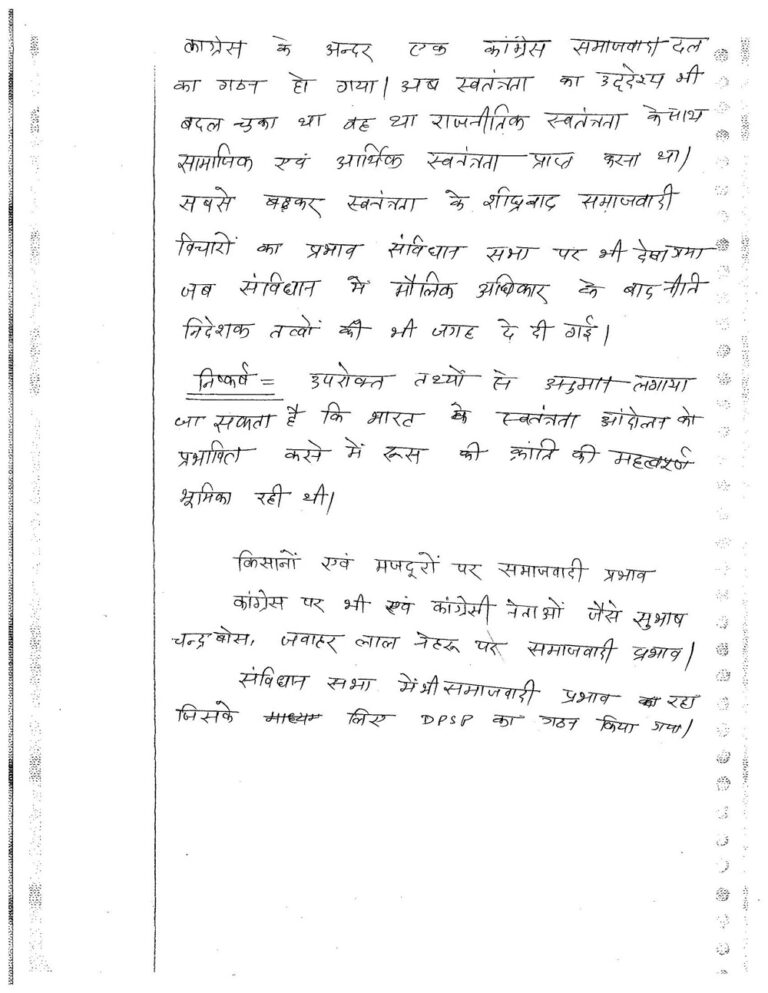 कांग्रेस के अन्दर एक कांग्रेस समाजवादी दल
का गठन हो गया। अब स्वतंत्रता का उद्देश्य भी
बदल चुका था वह था राजनीतिक स्वतंत्रता के साथ
सामाजिक एवं आर्थिक स्वतंत्रता प्राप्त करना था।
सबसे बढ़कर स्वतंत्रता के शीघ्रबाद समाजवादी
विचारों का प्रभाव संविधान सभा पर भी देखा गया
जब संविधान में मौलिक अधिकार के बाद नीति
निदेशक तत्वों को भी जगह दे दी गई।
निष्कर्ष = उपरोक्त तथ्यों से अनुमान लगाया
जा सकता है कि भारत के स्वतंत्रता आंदोलन को
प्रभावित करने में रूस की क्रांति की महत्वपूर्ण
भूमिका रही थी।
किसानों एवं मजदूरों पर समाजवादी प्रभाव
कांग्रेस पर भी एवं कांग्रेसी नेताओं जैसे सुभाष
चन्द्र बोस, जवाहर लाल नेहरू पर समाजवादी प्रभाव।
संविधान सभा में भी समाजवादी प्रभाव रहा
जिसके लिए DPSP का गठन किया गया।